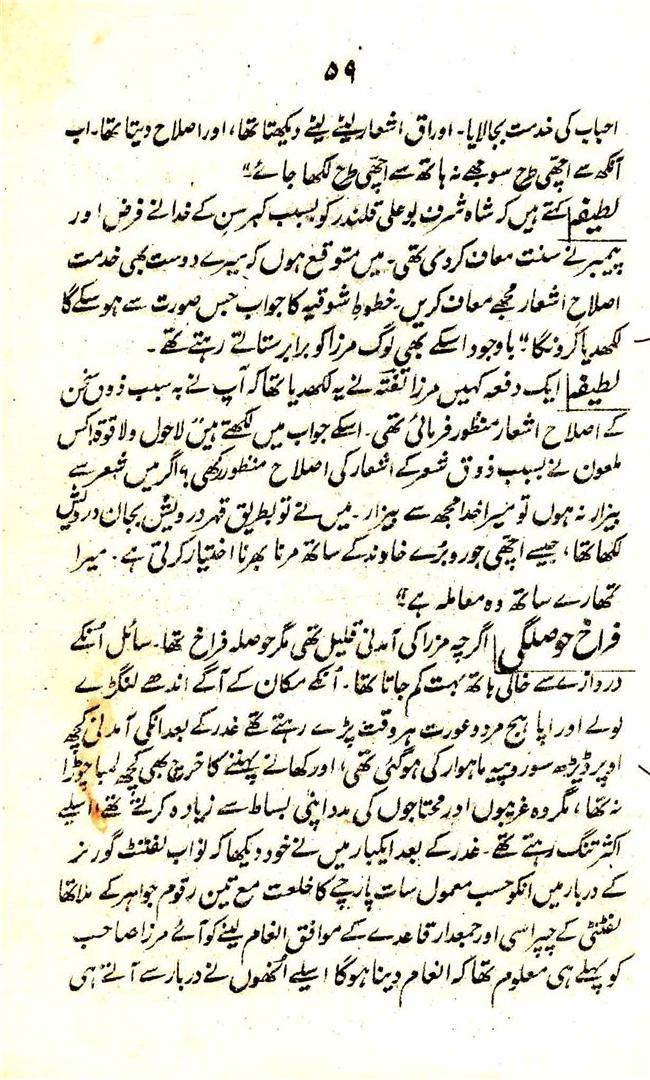 ۵۹
احباب کی خدمت بجا لایا۔ اوراق اشعار لیٹے لیٹے دیکھتا تھا، اور اصلاح دیتا تھا۔ اب
آنکھ سے اچھی طرح سوجھے نہ ہاتھ سے اچھی طرح لکھا جائے"
لطیفہ کہتے ہیں کہ شاہ شرف بو علی قلندر کو بسبب کبر سن کے خدا نے فرض اور
پیمبر نے سنت معاف کردی تھی۔ میں متوقع ہوں کہ میرے دوست بھی خدمت
اصلاح اشعار مجھے معاف کریں۔ خطوط شوقیہ کا جواب جس صورت سے ہو سکے گا
لکھدیا کرونگا" باوجود اسکے بھی لوگ مرزا کو برابر ستاتے رہتے تھے۔
لطیفہ ایک دفعہ کہیں مرزا تفتہ نے یہ لکھدیا تھا کہ آپ نے بہ سبب ذوق سخن
کے اصلاح اشعار منظور فرمائی تھی۔ اسکے جواب میں لکھتے ہیں "لاحول ولا قوۃ! کس
ملعون نے بسبب ذوق شعر کے اشعار کی اصلاح منظور رکھی؟ اگر میں شعر سے
بیزار نہ ہوں تو میرا خدا مجھ سے بیزار۔ میں نے تو بطریق قہر درویش بجان درویش
لکھا تھا، جیسے اچھی جورو بُرے خاوند کے ساتھ مرنا بھرنا اختیار کرتی ہے۔ میرا
تمھارے ساتھ وہ معاملہ ہے"
فراخ حوصلگی اگرچہ مرزا کی آمدنی قلیل تھی مگر حوصلہ فراخ تھا۔ سائل اُنکے
دروازے سے خالی ہاتھ بہت کم جاتا تھا۔ اُنکے مکان کے آگے اندھے لنگڑے
لولے اور اپاہج مرد و عورت ہر وقت پڑے رہتے تھے غدر کے بعد انکی آمدنی کچھ
اوپر ڈیڑھ سو روپیہ ماہوار کی ہو گئی تھی، اور کھانے پہننے کا خرچ بھی کچھ لمبا چوڑا
نہ تھا، مگر وہ غریبوں اور محتاجوں کی مدد اپنی بساط سے زیادہ کرتے تھے، اسلیے
اکثر تنگ رہتے تھے۔ غدر کے بعد ایکبار میں نے خود دیکھا کہ نواب لفٹنٹ گورنر
کے دربار میں انکو حسب معمول سات پارچے کا خلعت مع تین رقوم جواہر کے ملا تھا
لفٹنٹی کے چپراسی اور جمعدار قاعدے کے موافق انعام لینے کو آئے مرزا صاحب
کو پہلے ہی معلوم تھا کہ انعام دینا ہوگا اسلیے اُنھوں نے دربار سے آتے ہی